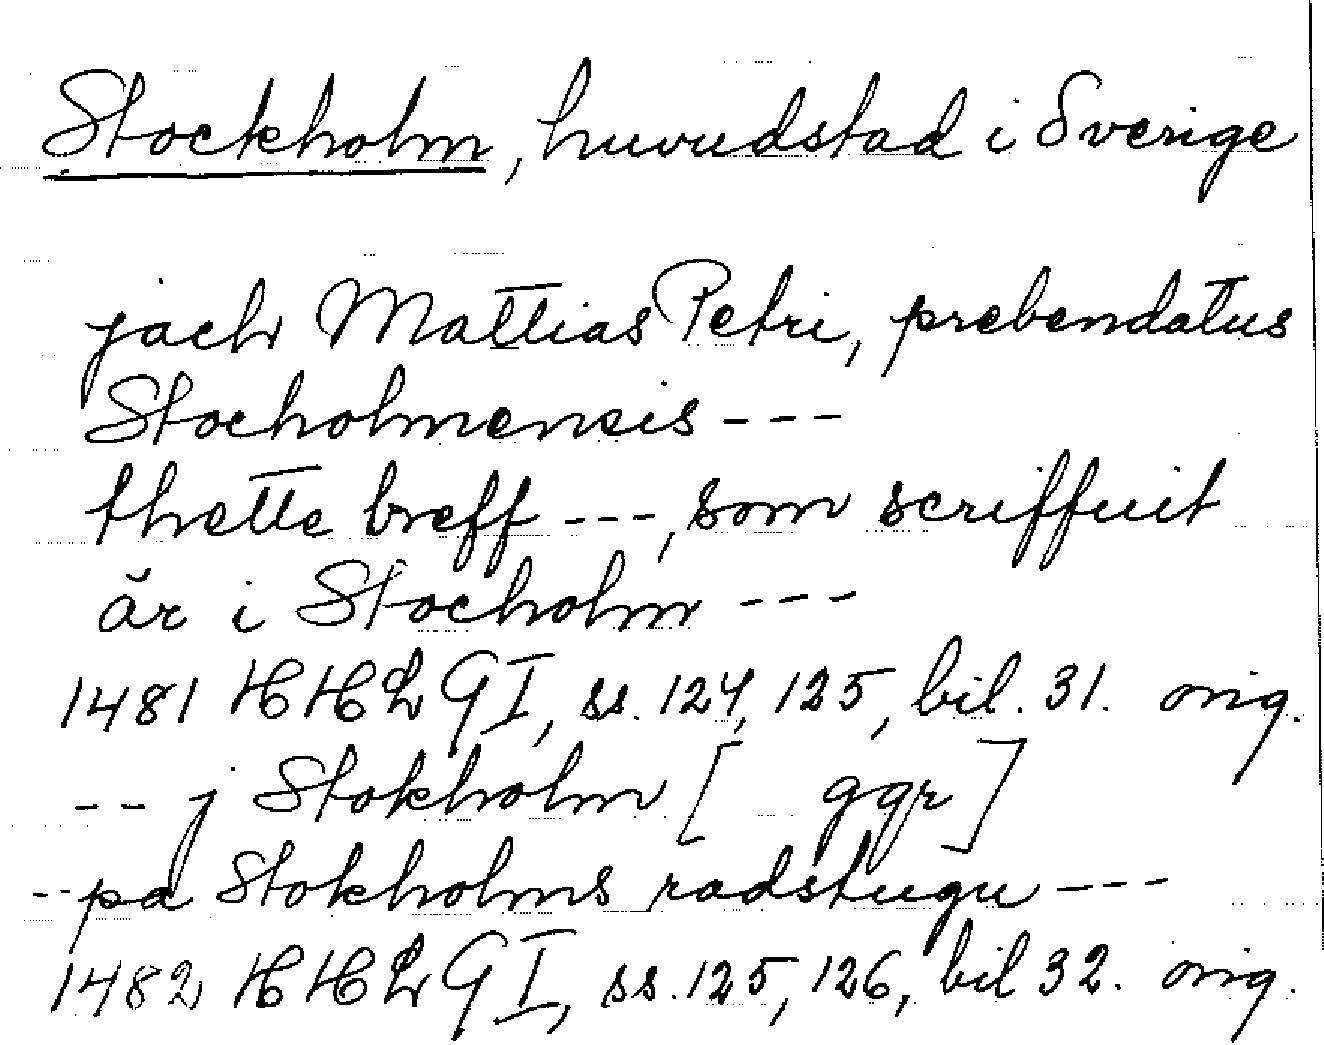 Stockholm, huvudstad i Sverige
jach Mattias Petri, prebendatus
Stocholmensis ---
thette breff ---, som scriffuit
är i Stocholm ---
1481 HHLG I, ss. 124, 125, bil. 31. orig.
-- j Stokholm [ ggr]
-- pa Stokholms radstugu ---
1482 HHLG I, ss. 125, 126, bil 32. orig.